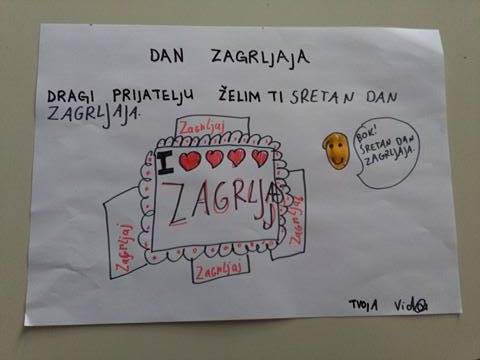 DAN ZAGRLJAJA
DRAGI PRIJATELJU ŽELIM TI SRETAN DAN
ZAGRLJAJA.
Zagrljaj
I
ZAGRLJAJ
Zagrljaj
Zagrljaj
Zagrljaj
BOK!
SRETAN DAN
ZAGRLJAJA.
TVOJA Vida